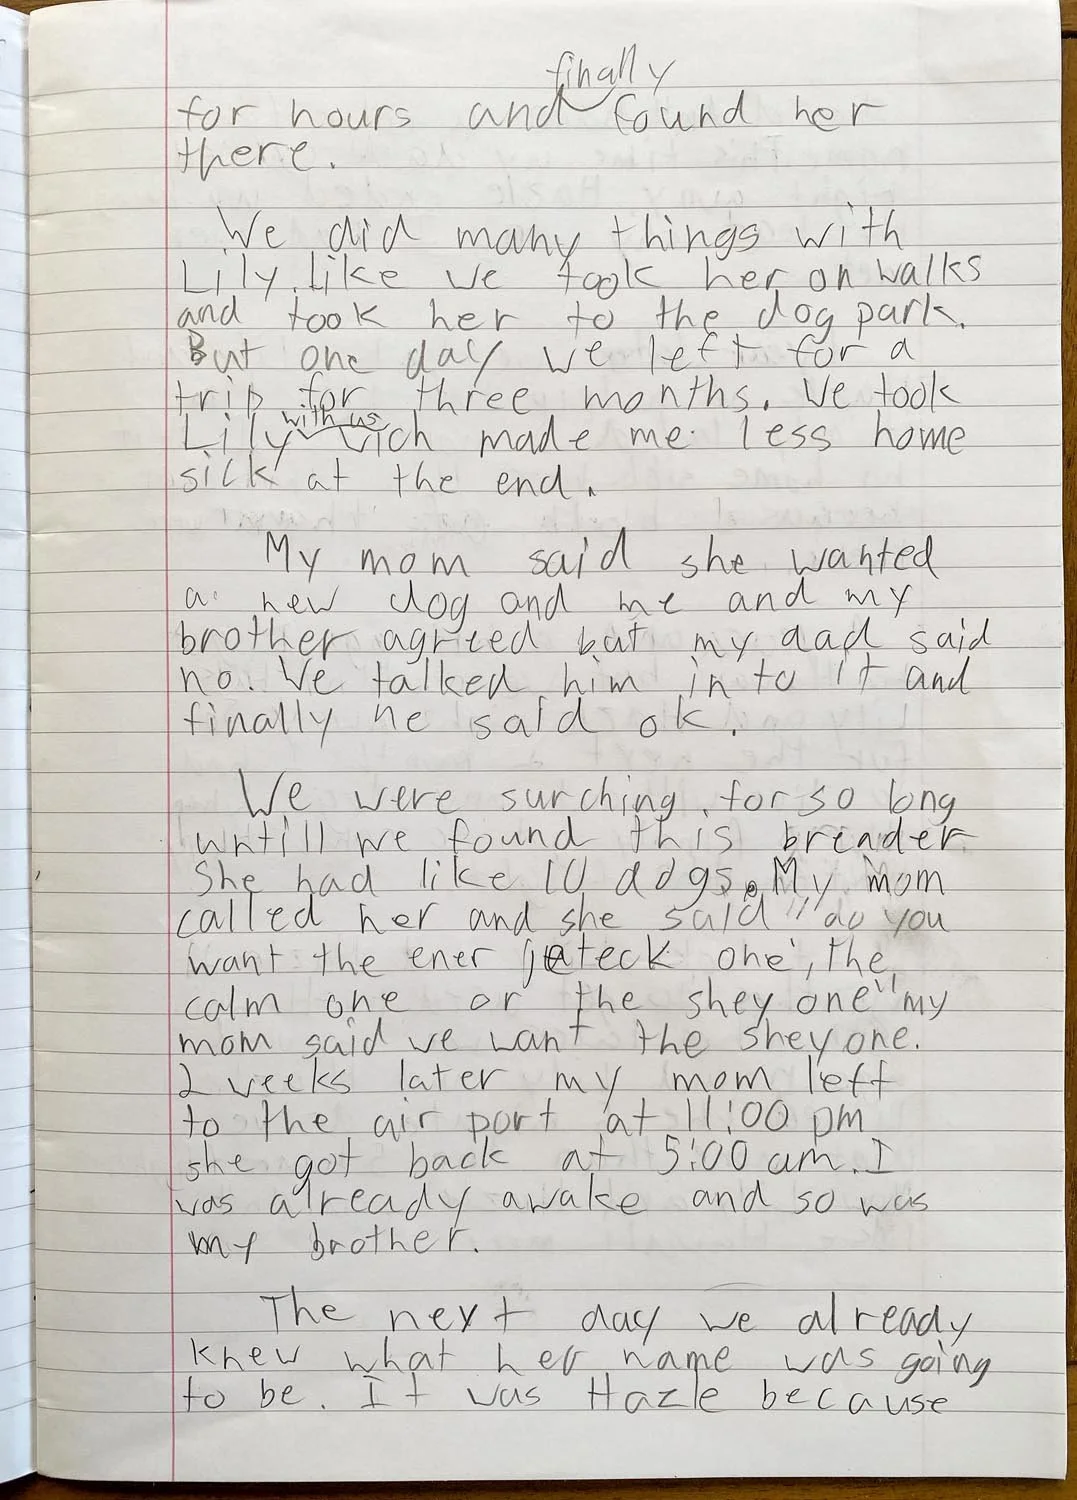 for hours and finally found her
there.
We did many things with
Lily like we took her on walks
and took her to the dog park.
But one day we left for a
trip for three months. We took
Lily with us wich made me less home
sick at the end.
My mom said she wanted
a new dog and me and my
brother agreed but my dad said
no. We talked him in to it and
finally he said ok.
We were surching for so long
untill we found this breader
She had like 10 dogs. My mom
called her and she said "do you
want the ener jeteck one, the
calm one or the shey one" my
mom said we want the shey one.
2 weeks later my mom left
to the air port at 11:00 pm
she got back at 5:00 am. I
was already awake and so was
my brother.
The next day we already
knew what her name was going
to be. It was Hazle because